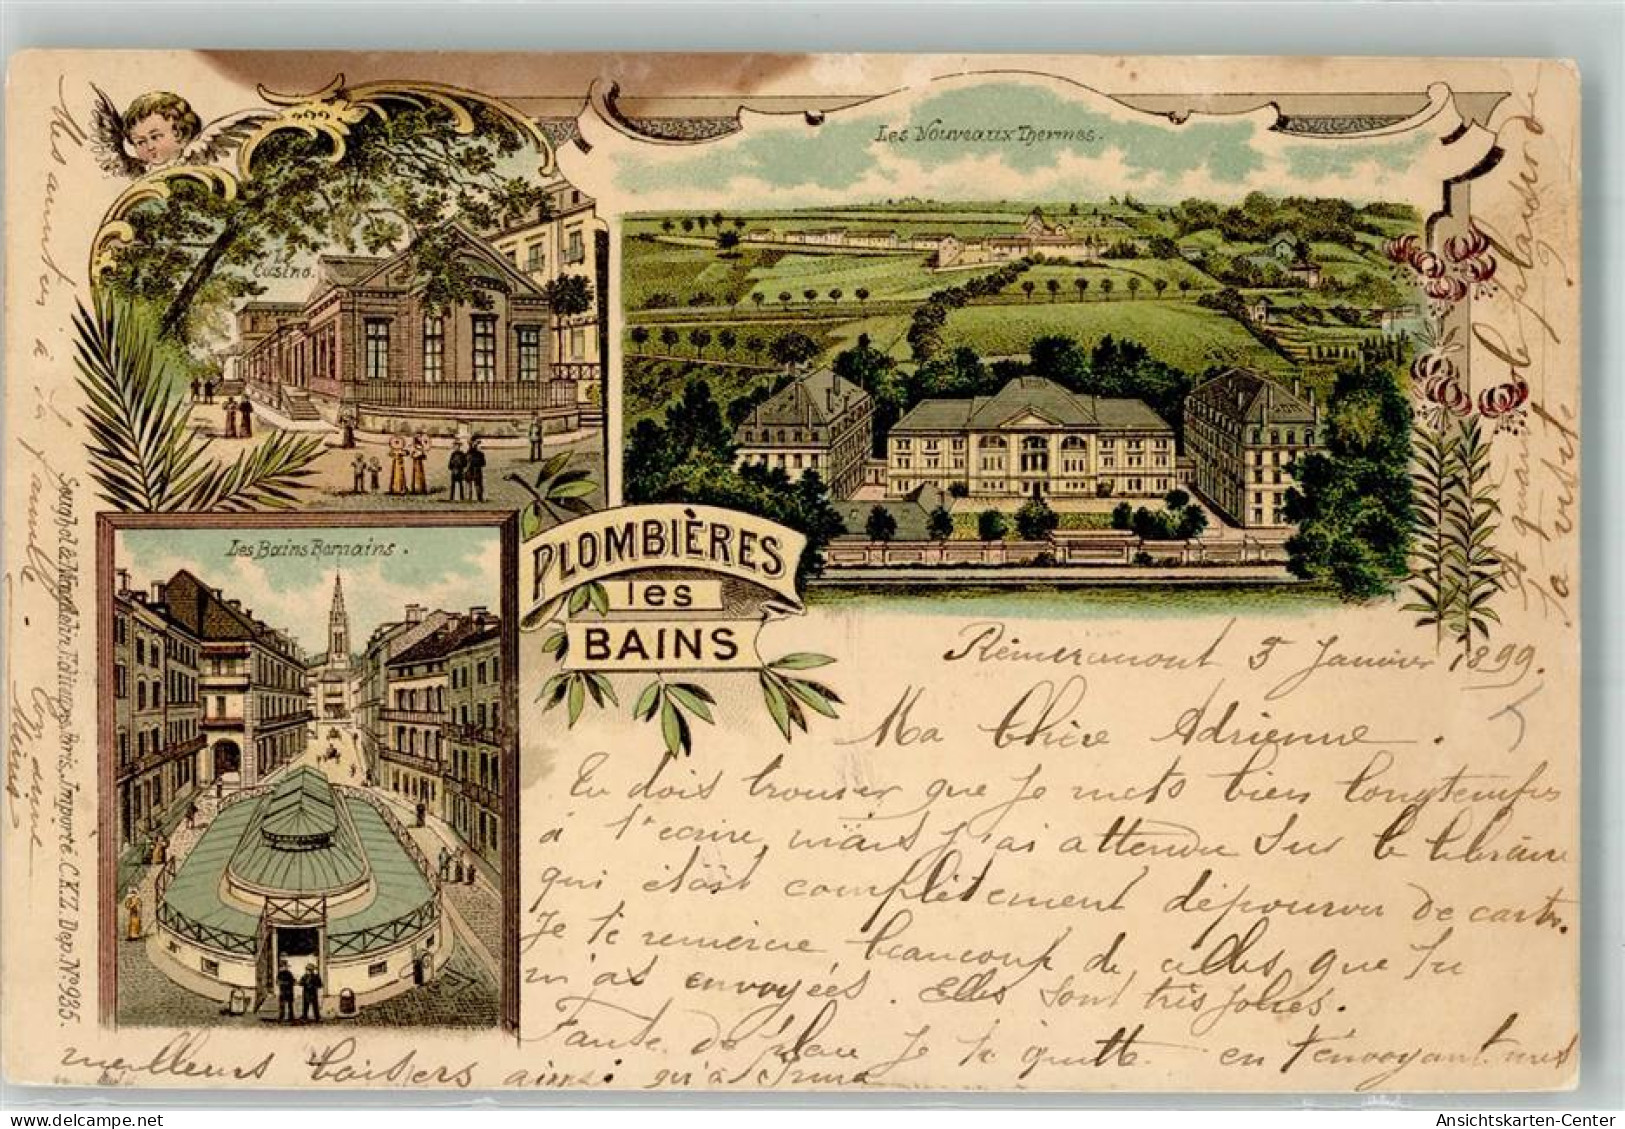 Les Nouveaux Thermes.
Le
Casino.
Les Bains Romains.
PLOMBIÈRES
les
BAINS
Rémiremont 5 Janvier 1899.
Ma Chère Adrienne.
Tu dois trouver que je mets bien longtemps
à t'écrire, mais j'ai attendu sur le libraire
qui était complètement dépourvu de cartes.
Je te remercie beaucoup de celles que tu
m'as envoyées. Elles sont très jolies.
Faute de place je te quitte en t'envoyant mes
meilleurs baisers ainsi qu'à Irma
Mes amitiés à ta famille.
Ton amie
Et quand le plaisir de
ta visite
Sourghol & Nordlein, Editeurs, Paris. Importé C.K.Z.Z. Dep. No. 935.
Ansichtskarten-Center